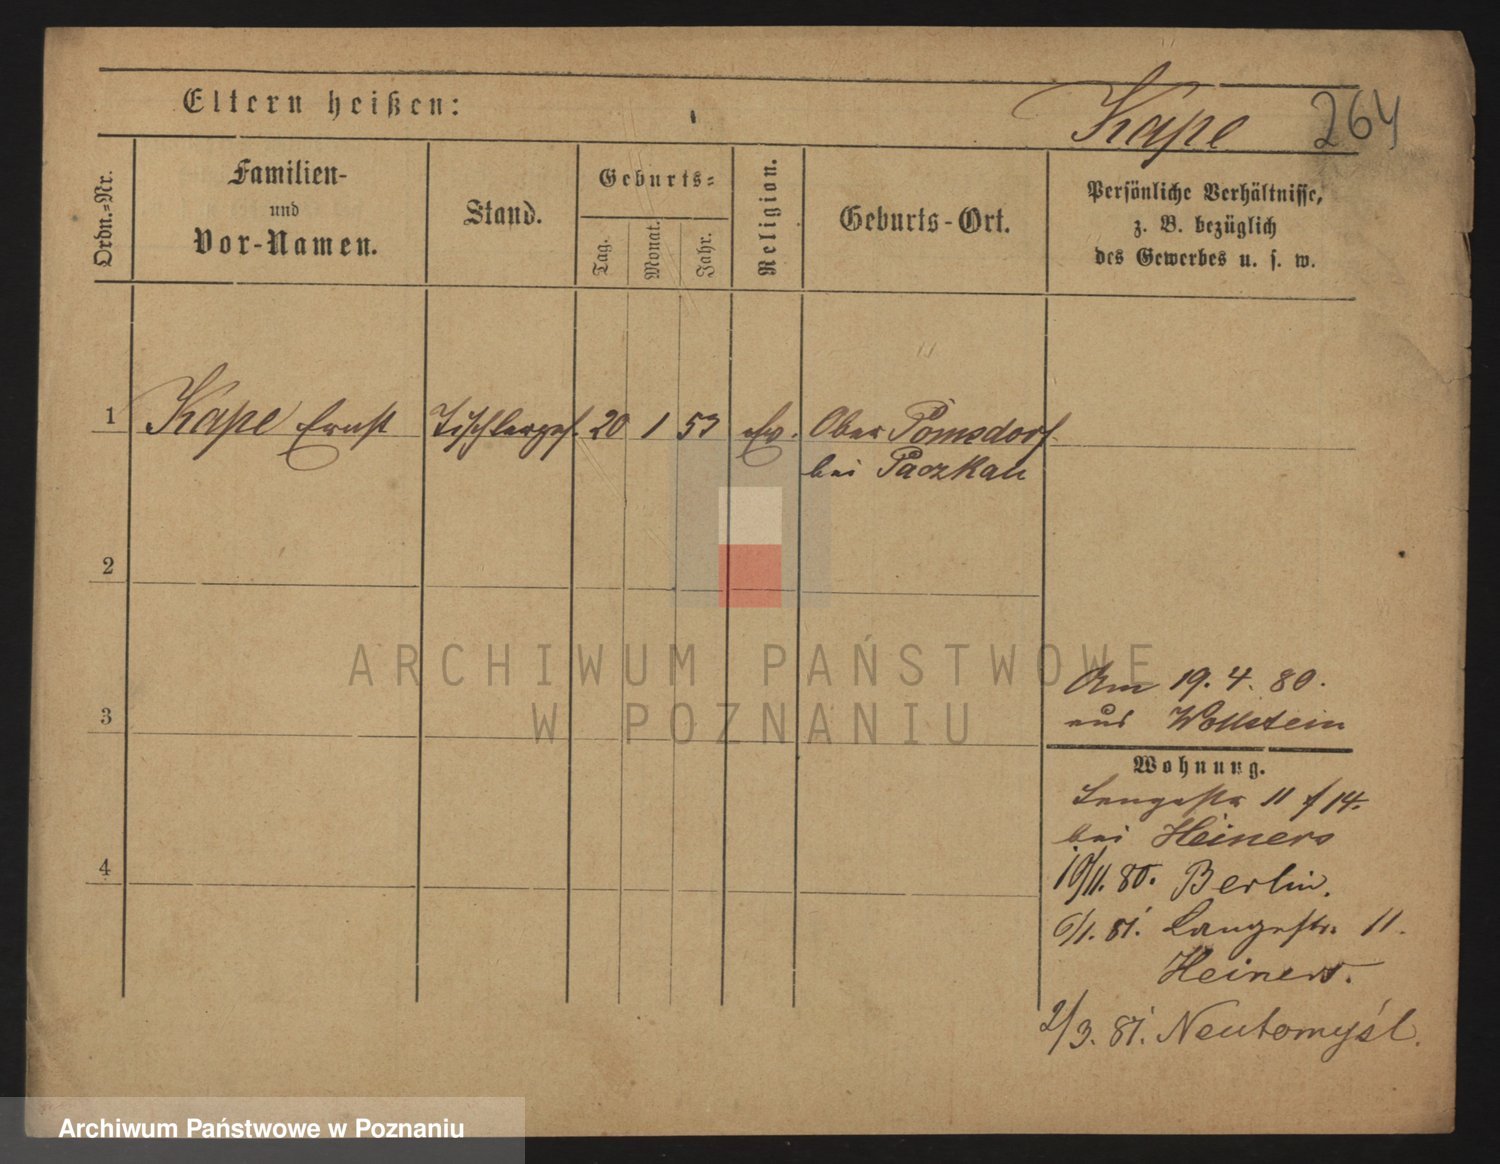 Eltern heißen:
Kape 264
Ordn.=Nr.
Familien-
und
Vor-Namen.
Stand.
Geburts=
Tag.
Monat.
Jahr.
Religion.
Geburts-Ort.
Persönliche Verhältnisse,
z. B. bezüglich
des Gewerbes u. s. w.
1 Kape Ernst Tischlerges. 20 1 53 Ev. Ober Pomsdorf
bei Paczkau
2
ARCHIWUM PAŃSTWOWE
W POZNANIU
Am 19. 4. 80.
aus Wollstein
3
Wohnung.
Langestr 11 f 14.
bei Heiners
4
19/11. 80. Berlin.
6/1. 81. Langestr. 11.
Heiners.
2/3. 81. Neutomyśl.
Archiwum Państwowe w Poznaniu